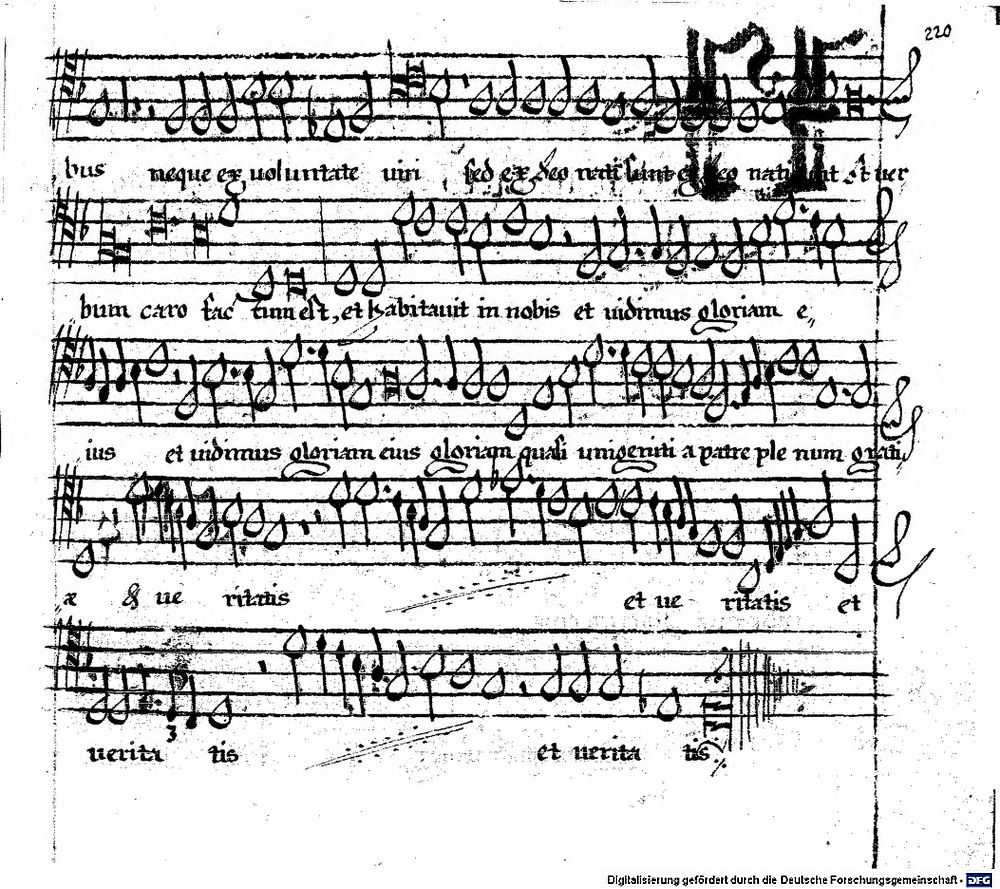 220
bus neque ex voluntate viri sed ex deo nati sunt ex deo nati sunt Et ver
bum caro fac tum est, et habitavit in nobis et vidimus gloriam e,,
ius et vidimus gloriam eius gloriam quasi unigeniti a patre ple num grati
æ & ve ritatis et ve ritatis et
3
verita tis et verita tis
Digitalisierung gefördert durch die Deutsche Forschungsgemeinschaft - DFG